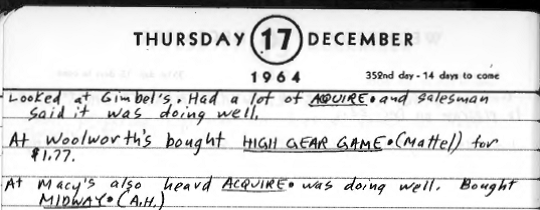 THURSDAY 17 DECEMBER
1964 352nd day - 14 days to come
Looked at Gimbel's. Had a lot of ACQUIRE. and salesman
said it was doing well.
At Woolworth's bought HIGH GEAR GAME. (Mattel) for
$1.77.
At Macy's also heard ACQUIRE. was doing well. Bought
MIDWAY. (A.H.)